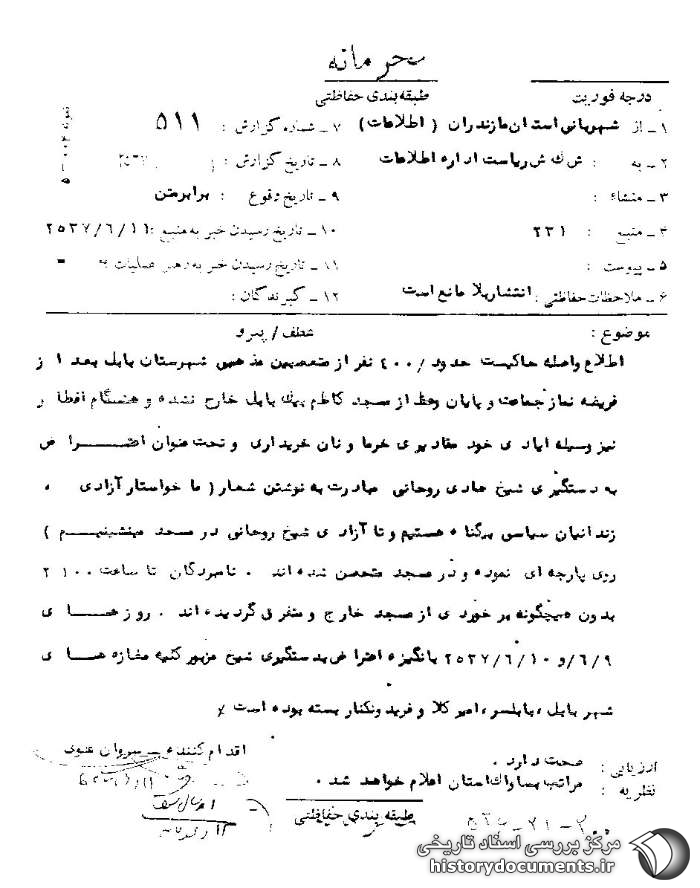 محرمانه
درجه فوریت
طبقه بندی حفاظتی
۱ـ از شهربانی استان مازندران (اطلاعات)
۷ ـ شماره گزارش : ۵۱۱
۲ـ به : ش ک ش ریاست اداره اطلاعات
۸ ـ تاریخ گزارش :
۳ ـ منشاء :
۹ ـ تاریخ وقوع : برابر متن
۴ ـ منبع : ۲۳۱
۱۰ ـ تاریخ رسیدن خبر به منبع : ۲۵۳۷/۶/۱۱
۵ ـ پیوست : -
۱۱ ـ تاریخ رسیدن خبر به رهبر عملیات :
۶ ـ ملاحظات حفاظتی : انتشار بلا مانع است
۱۲ ـ گیرندگان :
موضوع :
عطف / پیرو
اطلاع واصله حاکیست حدود /۴۰۰ نفر از متعصبین مذهبی شهرستان بابل بعد از
فریضه نماز جماعت و پایان وعظ از مسجد کاظم بیک بابل خارج نشده و هنگام افطار
نیز وسیله ایادی خود مقادیری خرما و نان خریداری و تحت عنوان اعتراض
به دستگیری شیخ هادی روحانی مبادرت به نوشتن شعار ( ما خواستار آزادی
زندانیان سیاسی بیگناه هستیم و تا آزادی شیخ روحانی در مسجد مینشینیم )
روی پارچه ای نموده و در مسجد متحصن شده اند . نامبردگان تا ساعت ۲۱۰۰
بدون هیچگونه برخوردی از مسجد خارج و متفرق گردیده اند . روزهای
۶/۹/ و ۲۵۳۷/۶/۱۰ بانگیزه اعتراض بدستگیری شیخ مزبور کلیه مغازه های
شهر بابل ، بابلسر ، امیرکلا و فریدونکنار بسته بوده است
اقدام کننده ـ سروان علوی
ارزیابی : صحت دارد .
نظریه : مراتب بساواک استان اعلام خواهد شد .
طبقه بندی حفاظتی
مرکز بررسی اسناد تاریخی
historydocuments.ir